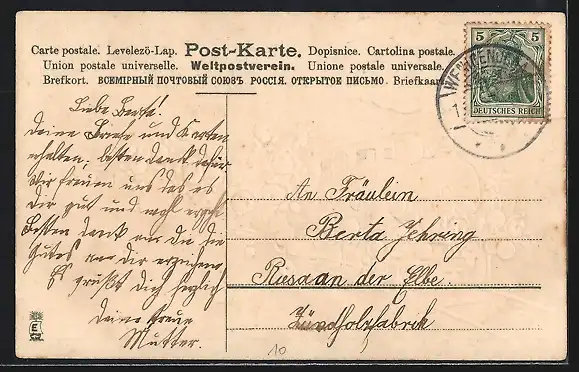 Carte postale. Levelezö-Lap. Post-Karte. Dopisnice. Cartolina postale.
Union postale universelle. Weltpostverein. Unione postale universale.
Brefkort. ВСЕМІРНЫЙ ПОЧТОВЫЙ СОЮЗЪ. РОССІЯ. ОТКРЫТОЕ ПИСЬМО. Briefkaart.
5 5
DEUTSCHES REICH
Liebe Berta!
Deine Briefe und Karten
erhalten. besten Dank dafür
Wir freuen uns das es
Dir gut und wohl ergeht
Besten Dank an die die
Gutes an dir erzeigen
Es grüßt Dich herzlich
Deine treue
Mutter.
An Fräulein
Berta Jehring
Riesa an der Elbe.
Zündholzfabrik
10
E